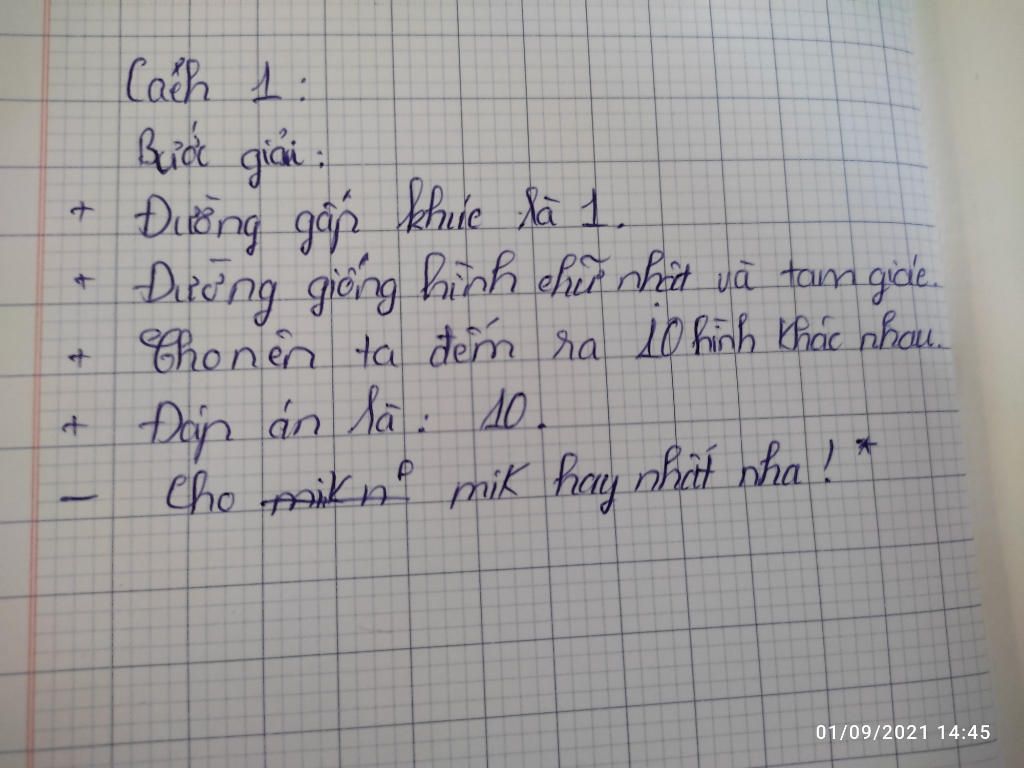 Cách 1:
Bước giải:
+ Đường gấp khúc là 1.
+ Đường giống hình chữ nhật và tam giác.
+ Cho nên ta đếm ra 10 hình khác nhau.
+ Đáp án là: 10.
- Cho mik n mik hay nhất nha! *
01/09/2021 14:45